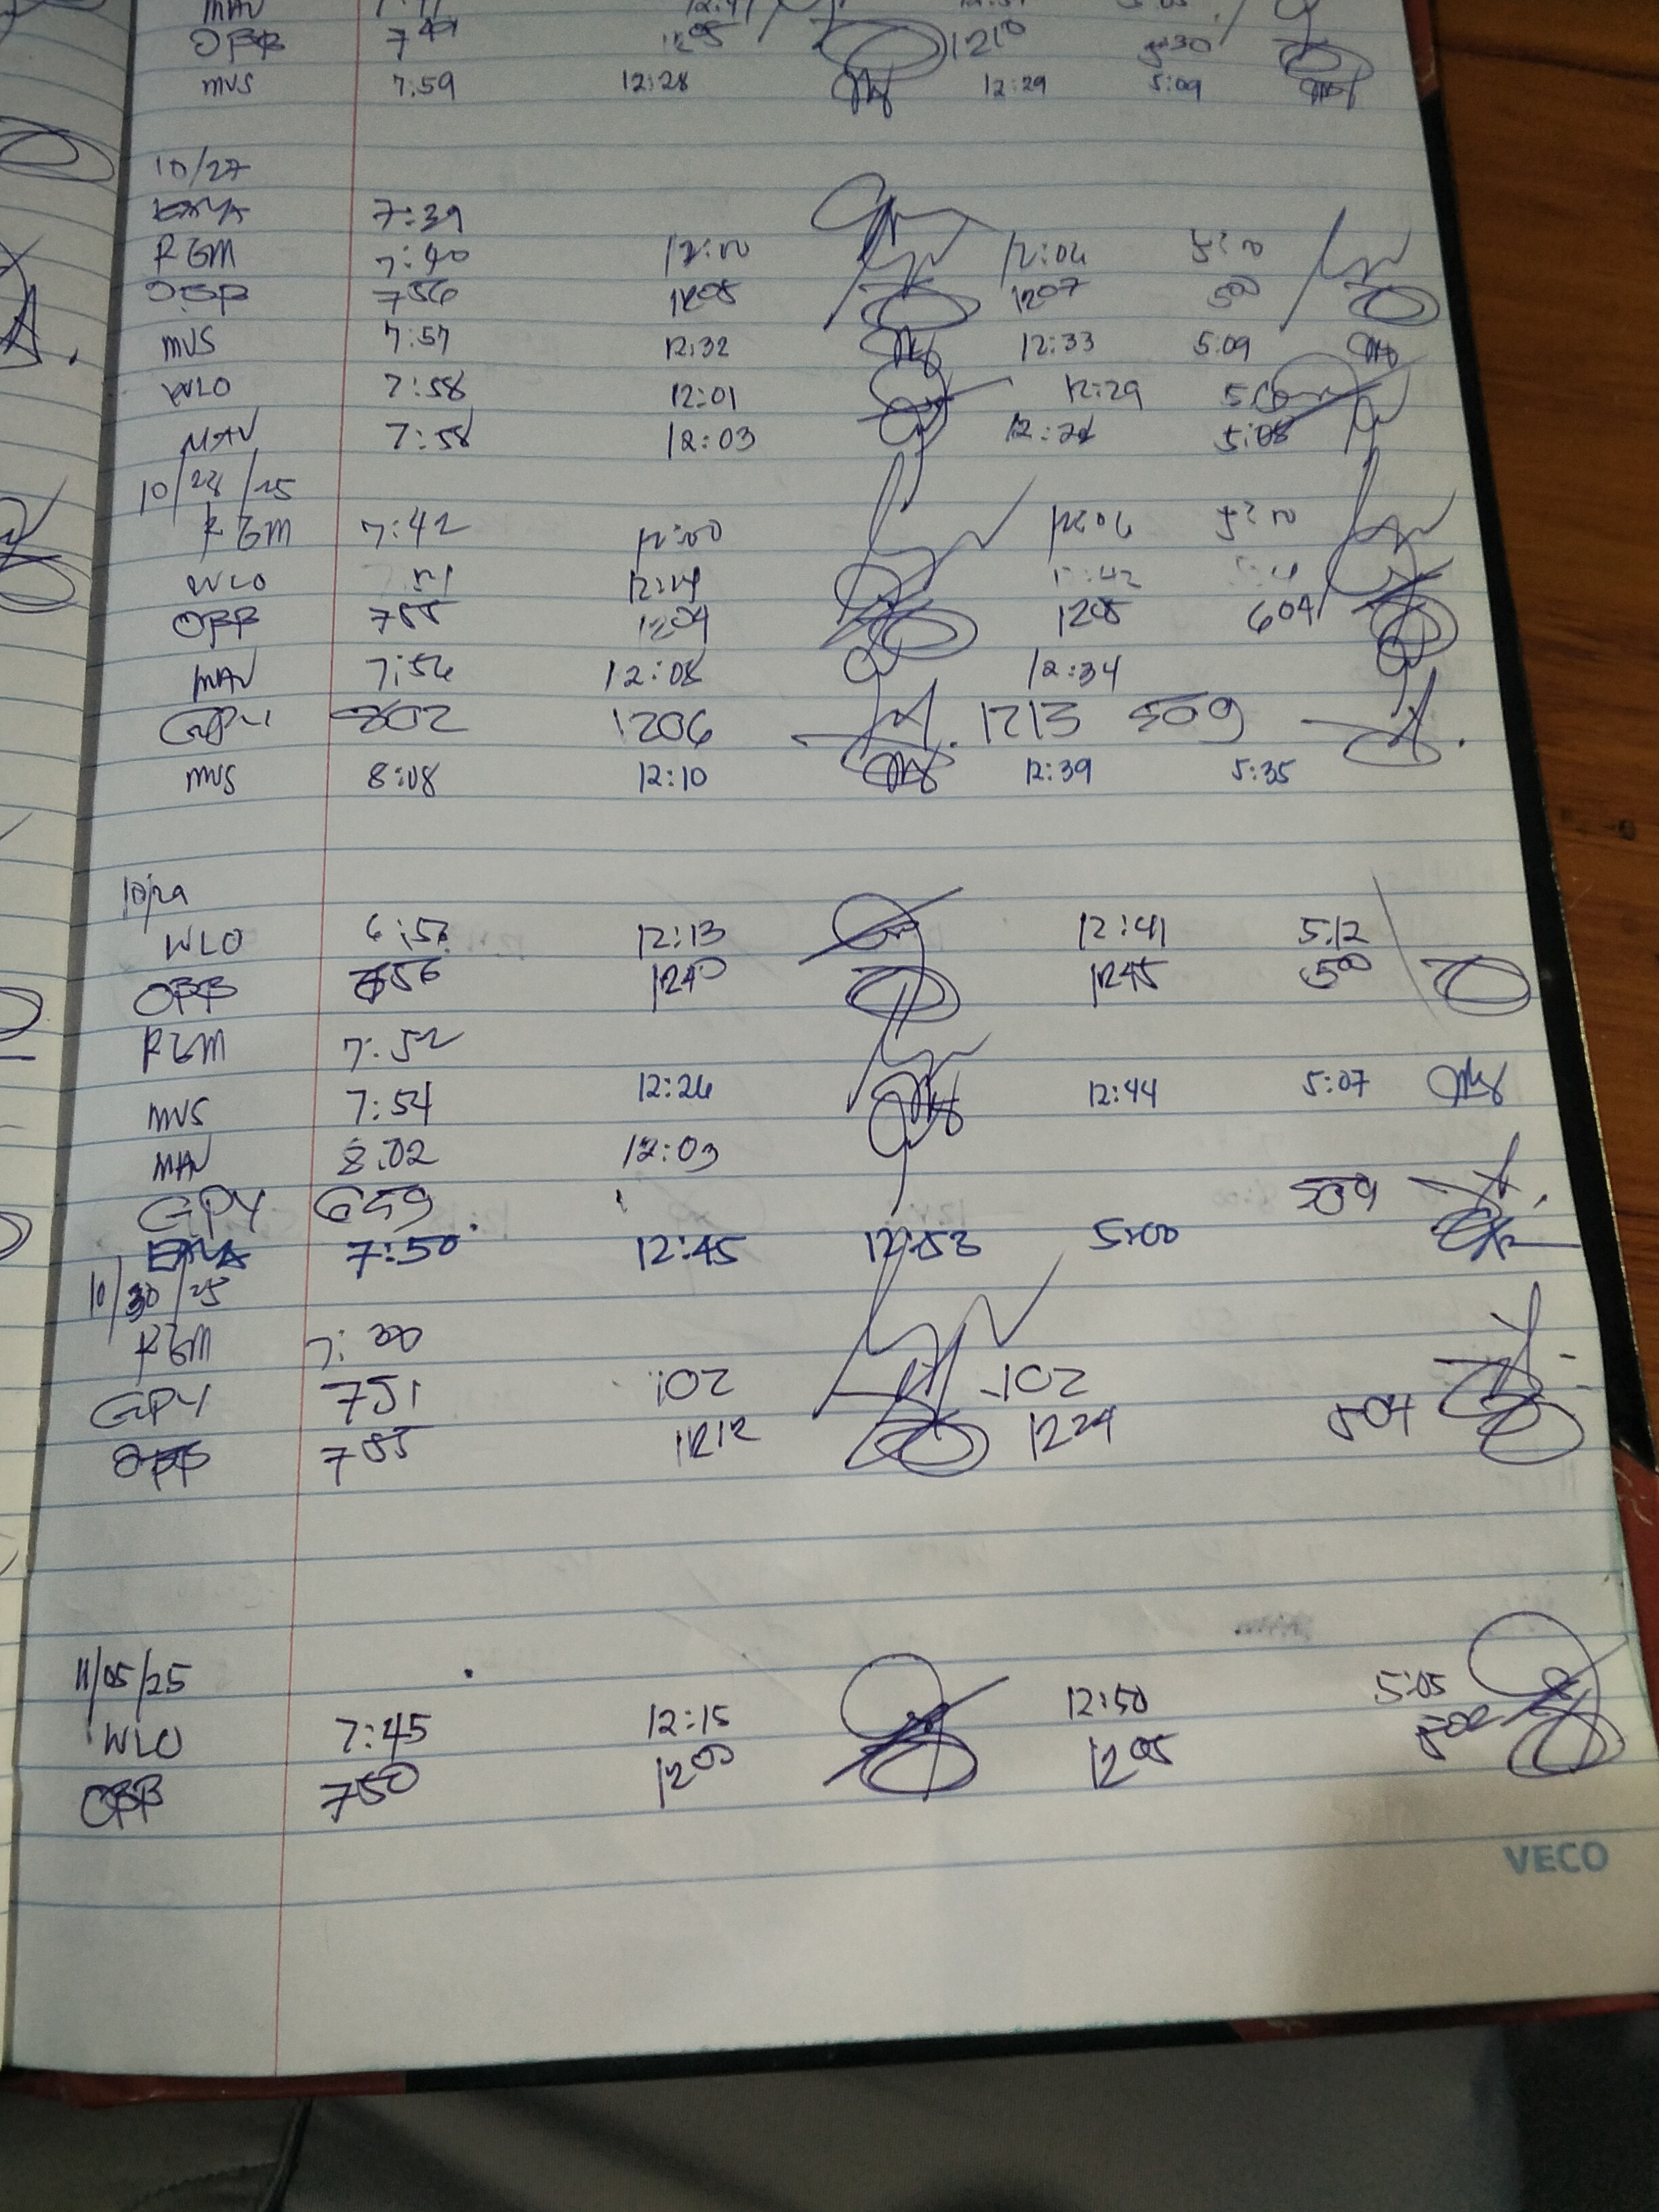 MAV
OBB 7 49 12 05 12 10 5 30
MVS 7:59 12:28 12:29 5:09
10/27
7:39
RGM 7:40 12:00 12:06 5:00
OBB 756 1205 1207 5 00
MVS 7:57 12:32 12:33 5:09
WLO 7:58 12:01 12:29
MAV 7:58 12:03 5:08
10/28/25
RGM 7:42 12:00 12:06 5:00
WLO 12:14 :42
OBB 755 1204 1205 604
MAV 7:56 12:08 12:34
GPY 802 1206 1213 509
MVS 8:08 12:10 12:39 5:35
10/29
WLO 12:13 12:41 5:12
OBB 12 40 1245 5 00
RGM 7:52
MVS 7:54 12:26 12:44 5:07
MAV 8:02 12:03
GPY 659 509
7:50 12:45 12:53 5:00
10/30/25
RGM 7:30
GPY 751 102 102
OBB 755 1212 1224 504
11/05/25
WLO 7:45 12:15 12:50 5:05
OBB 750 12 00 12 05 502
VECO